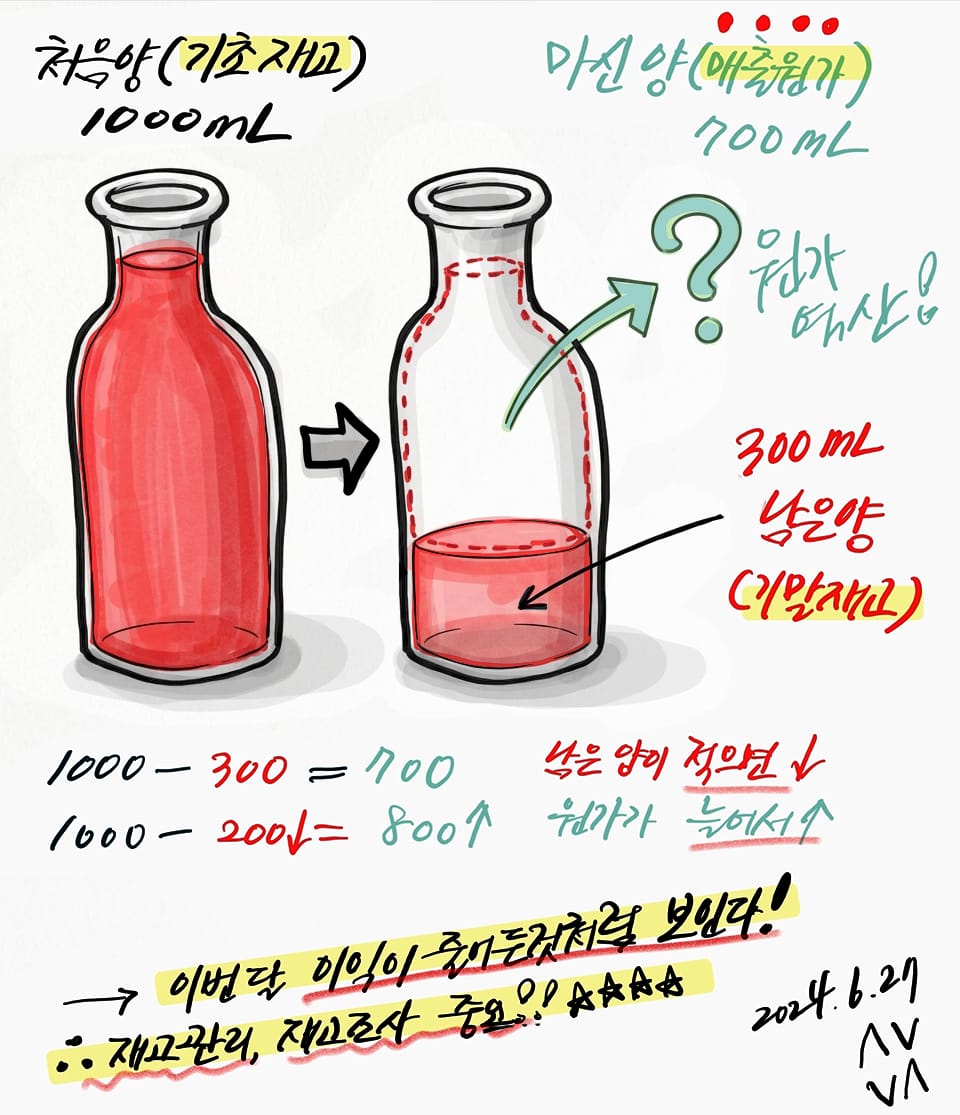 처음양(기초재고)
1000mL
마신양(매출원가)
700mL
?
원가
역산!
300mL
남은양
(기말재고)
1000-300=700
남은 양이 적으면↓
1000-200↓=800↑
원가가 늘어서↑
→ 이번달 이익이 줄어든것처럼 보인다!
∴ 재고관리, 재고조사 중요!! ☆☆☆☆
2024.6.27